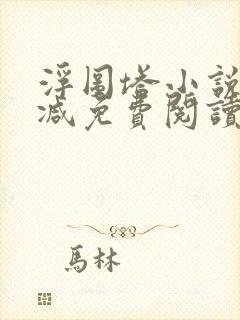 浮圖塔小說
減免費閱讀
馬林